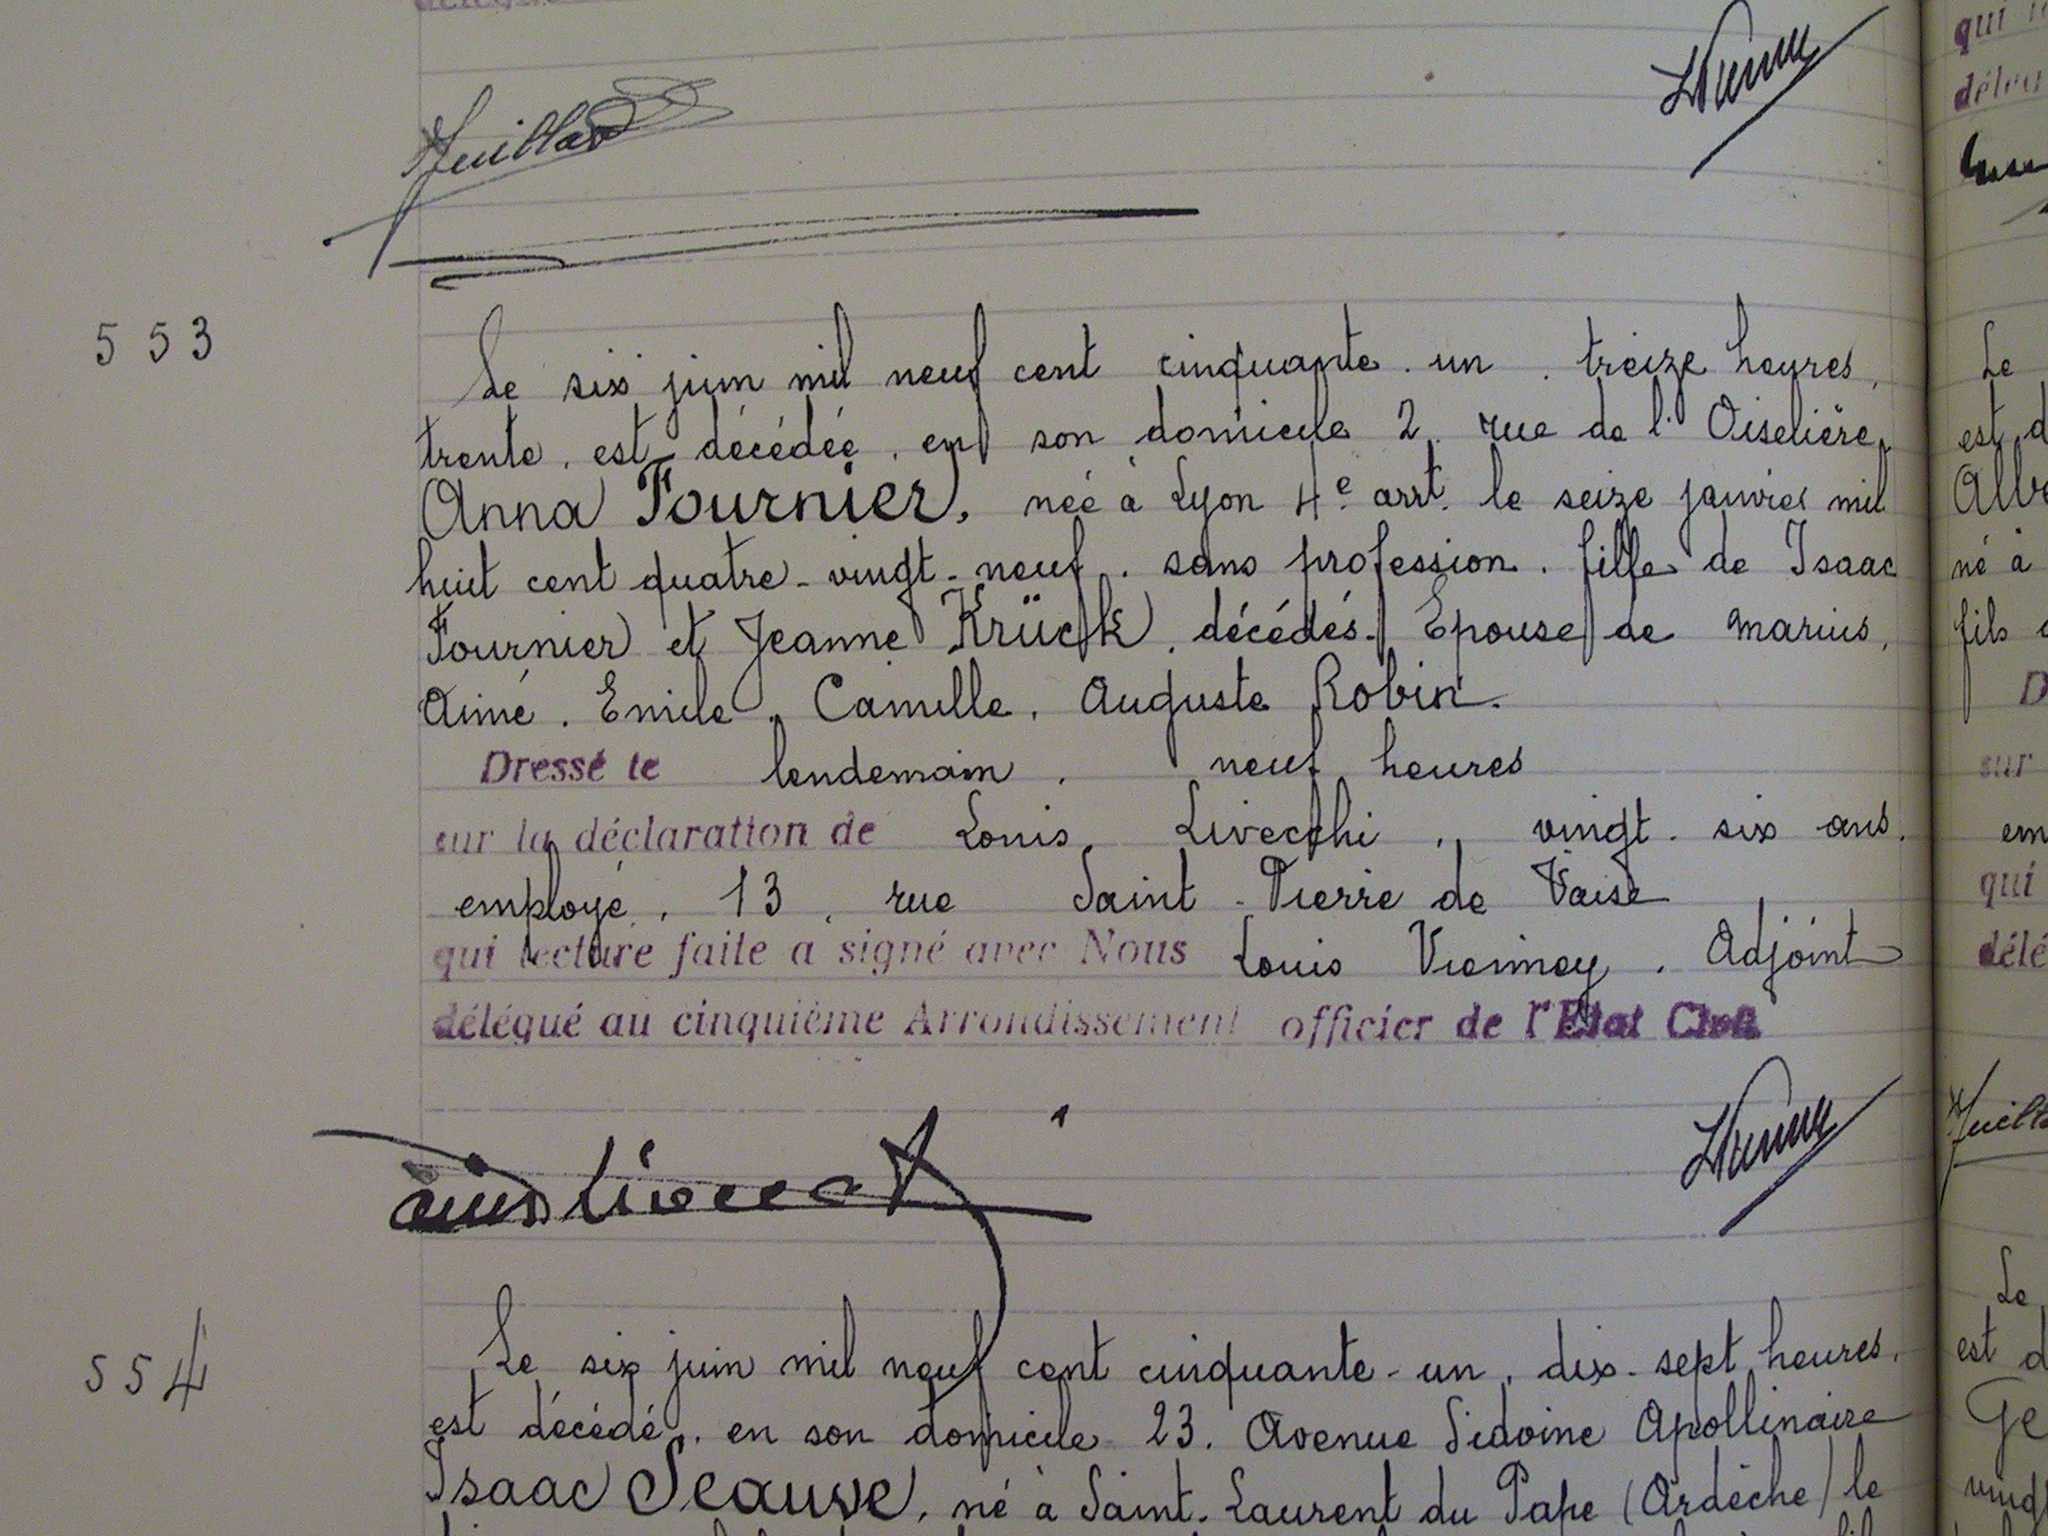 553
Le six juin mil neuf cent cinquante . un . treize heures,
trente . est décédée . en son domicile 2 . rue de l'Oiselière,
Anna Fournier, née à Lyon 4e arrt. le seize janvier mil
huit cent quatre-vingt-neuf . sans profession . fille de Isaac
Fournier et Jeanne Krück . décédés. Epouse de Marius,
Aimé . Emile . Camille . Auguste Robin.
Dressé le lendemain . neuf heures
sur la déclaration de Louis, Livecchi . vingt-six ans.
employé . 13 . rue Saint-Pierre de Vaise
qui lecture faite a signé avec Nous Louis . Adjoint
délégué au cinquième Arrondissement officier de l'Etat Civil
554
Le six juin mil neuf cent cinquante-un . dix-sept heures.
est décédé . en son domicile 23. Avenue Sidoine Apollinaire
Isaac Seauve, né à Saint-Laurent du Pape (Ardèche) le
qui
Le
est d
né à
fils
sur
em
qui
délé
Le
est d
Ge